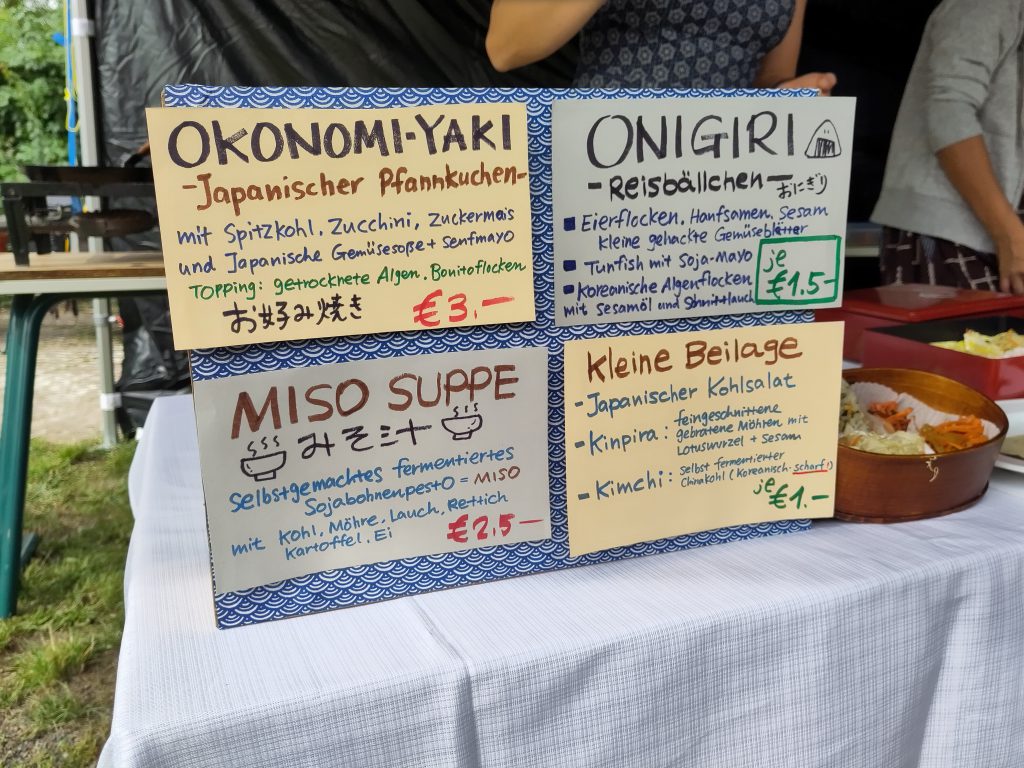 OKONOMI-YAKI
-Japanischer Pfannkuchen-
mit Spitzkohl, Zucchini, Zuckermais
und Japanische Gemüsesoße + Senfmayo
TOPPING: getrocknete Algen. Bonitoflocken
お好み焼き €3.-
ONIGIRI
-Reisbällchen- おにぎり
Eierflocken, Hanfsamen, Sesam
kleine gehackte Gemüseblätter
Tunfish mit Soja-Mayo
Koreanische Algenflocken
mit Sesamöl und Schnittlauch
je
€1.5-
MISO SUPPE
みそ汁
Selbstgemachtes fermentiertes
Sojabohnenpesto = MISO
mit Kohl, Möhre, Lauch, Rettich
Kartoffel. Ei
€2,5-
Kleine Beilage
-Japanischer Kohlsalat
-Kinpira: feingeschnittene
gebratene Möhren mit
Lotuswurzel + Sesam
-Kimchi: Selbst fermentierter
Chinakohl (Koreanisch. scharf!)
je €1.-